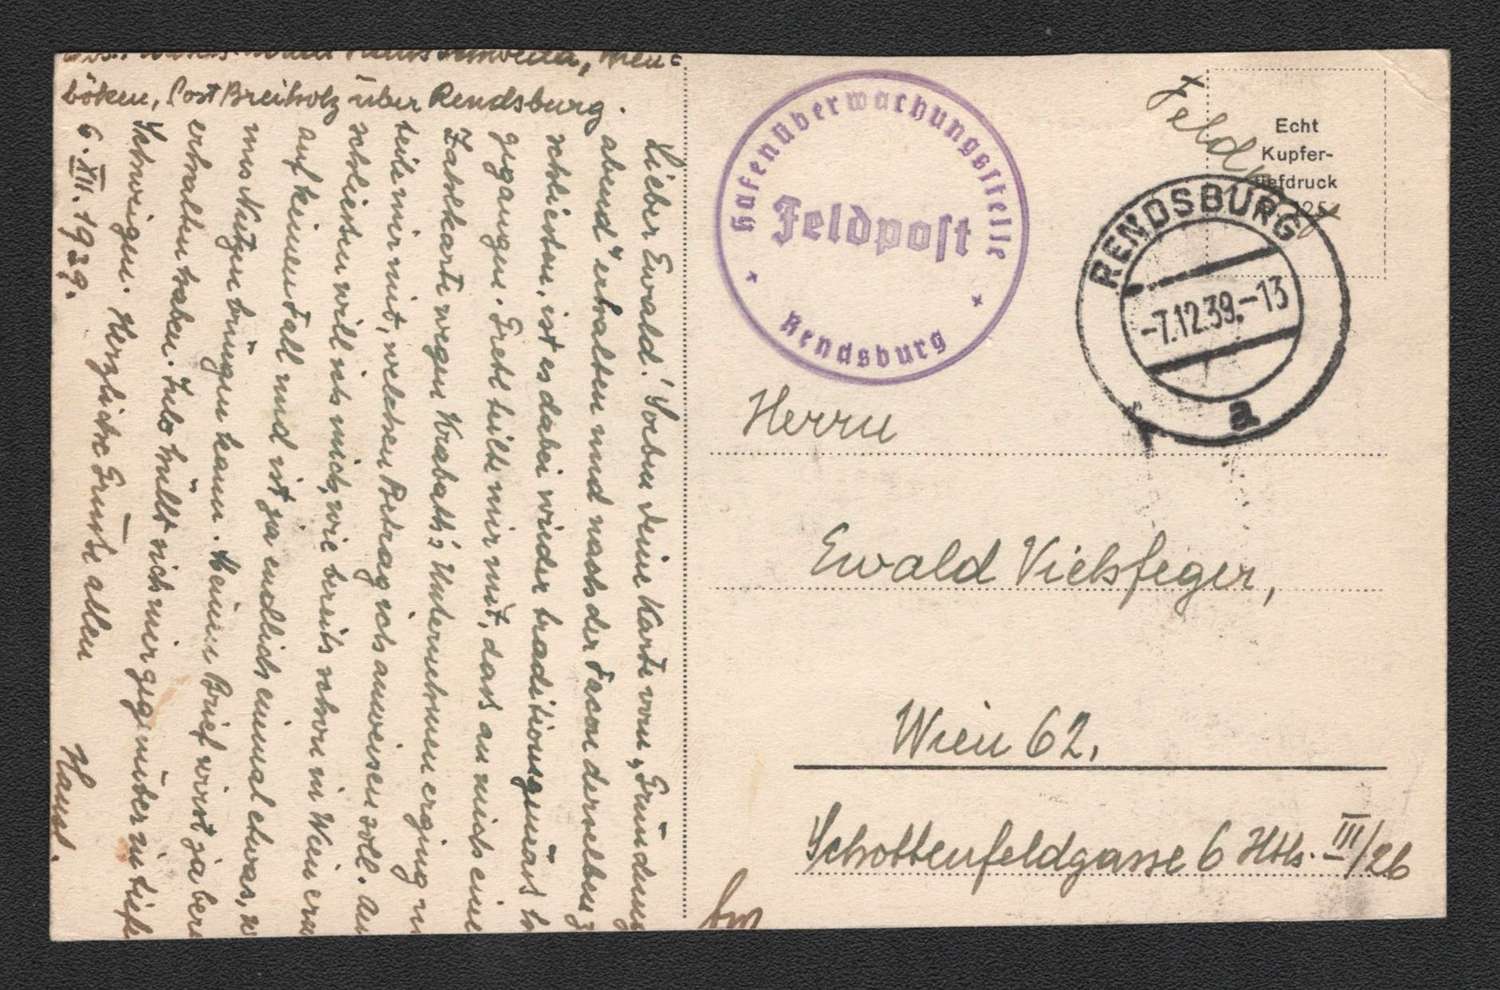 böken, Post Breiholz über Rendsburg.
6.XII.1939.
Lieber Ewald! Soeben deine Karte vom „Gründungs
abend" erhalten und nach der Facon derselben z
schliessen, ist es dabei wieder traditionsgemäss h
gegangen. Gretl teilt mir mit, dass an mich eine
Zahlkarte wegen Krabath's Unternehmen erging u
teile mir mit, welchen Betrag ich anweisen soll. Au
schliessen will ich mich, wie bereits schon in Wien erw
auf keinen Fall und ist ja endlich einmal etwas, w
uns Nutzen bringen kann. Meinen Brief wirst ja bere
erhalten haben. Julo hüllt sich mir gegenüber in tiefe
Schweigen. Herzliche Grüsse allen
Hansl.
Hafenüberwachungsstelle
Feldpost
Rendsburg
Feldp
Echt
Kupfer-
tiefdruck
RENDSBURG
-7.12.39.-13
a
Herrn
Ewald Vielsfeger,
Wien 62.
Schottenfeldgasse 6 Hths. III/26